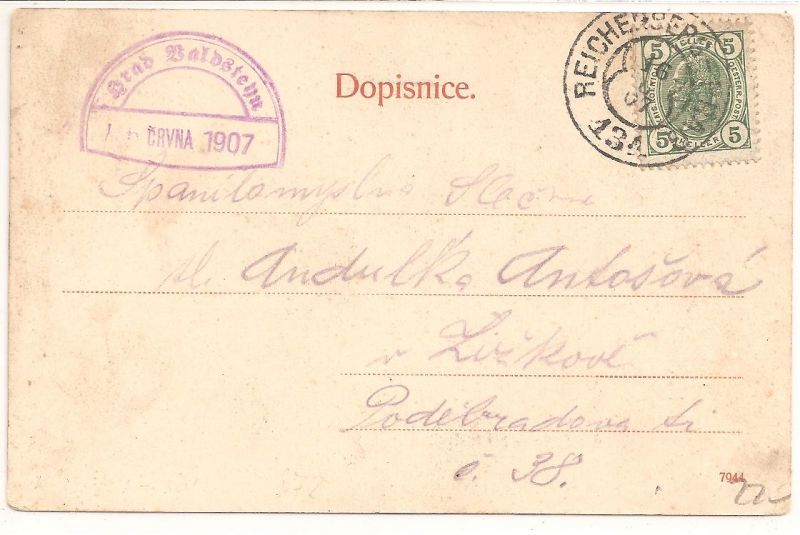 Hrad Valdstein
ČRVNA 1907
Dopisnice.
REICHENBERG
13A
5 HELLER 5
5 HELLER 5
Spanilomyslná Slečna
sl. Andulka Antošová
v Žižkově
Poděbradova tř
č. 38.
7944